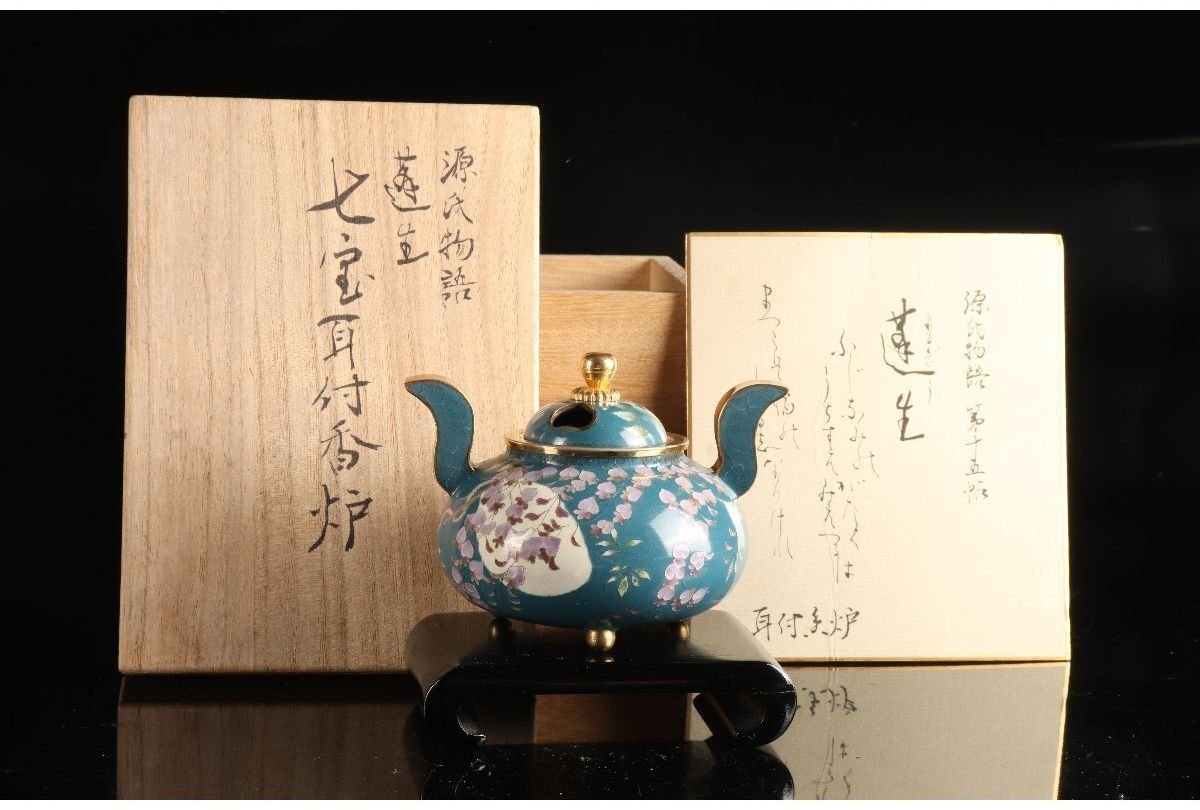 源氏物語
蓬生
七宝耳付香炉
源氏物語 第十五帖
蓬生
よもぎう
ふじなみの
うちすぎがたく
みえつるは
まつこそ宿の
しるしなりけれ
耳付香炉